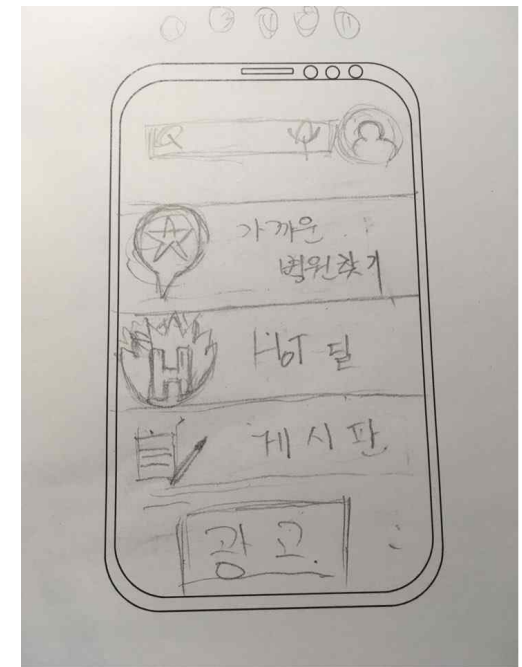 가까운
병원찾기
H
HOT 딜
게시판
광고